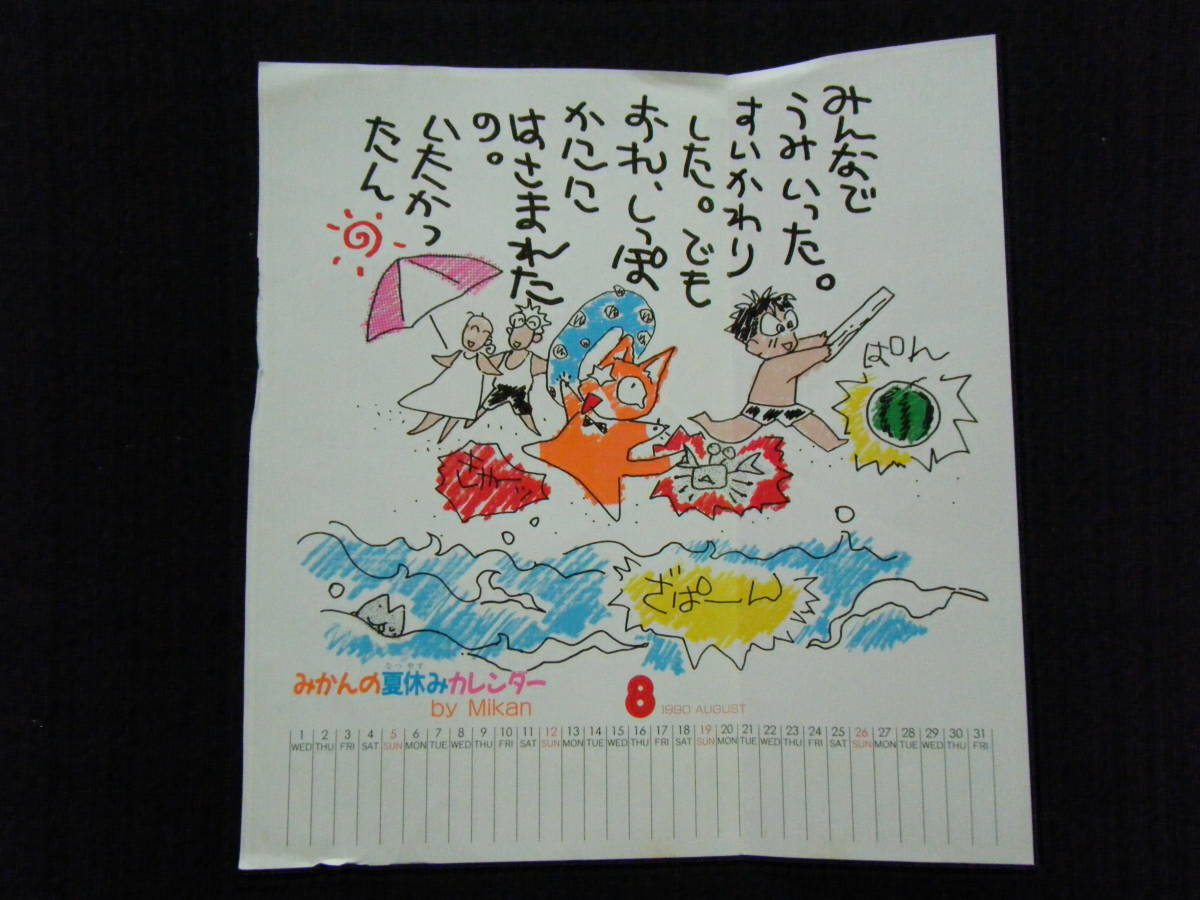 みんなで
うみいった。
すいかわり
した。でも
おれ、しっぽ
かにに
はさまれた
の。
いたかっ
たん
ぱん
ぎゃーッ
ざぱーん
なつやす
みかんの夏休みカレンダー
by Mikan
8 1990 AUGUST
1 2 3 4 5 6 7 8 9 10 11 12 13 14 15 16 17 18 19 20 21 22 23 24 25 26 27 28 29 30 31
WED THU FRI SAT SUN MON TUE WED THU FRI SAT SUN MON TUE WED THU FRI SAT SUN MON TUE WED THU FRI SAT SUN MON TUE WED THU FRI